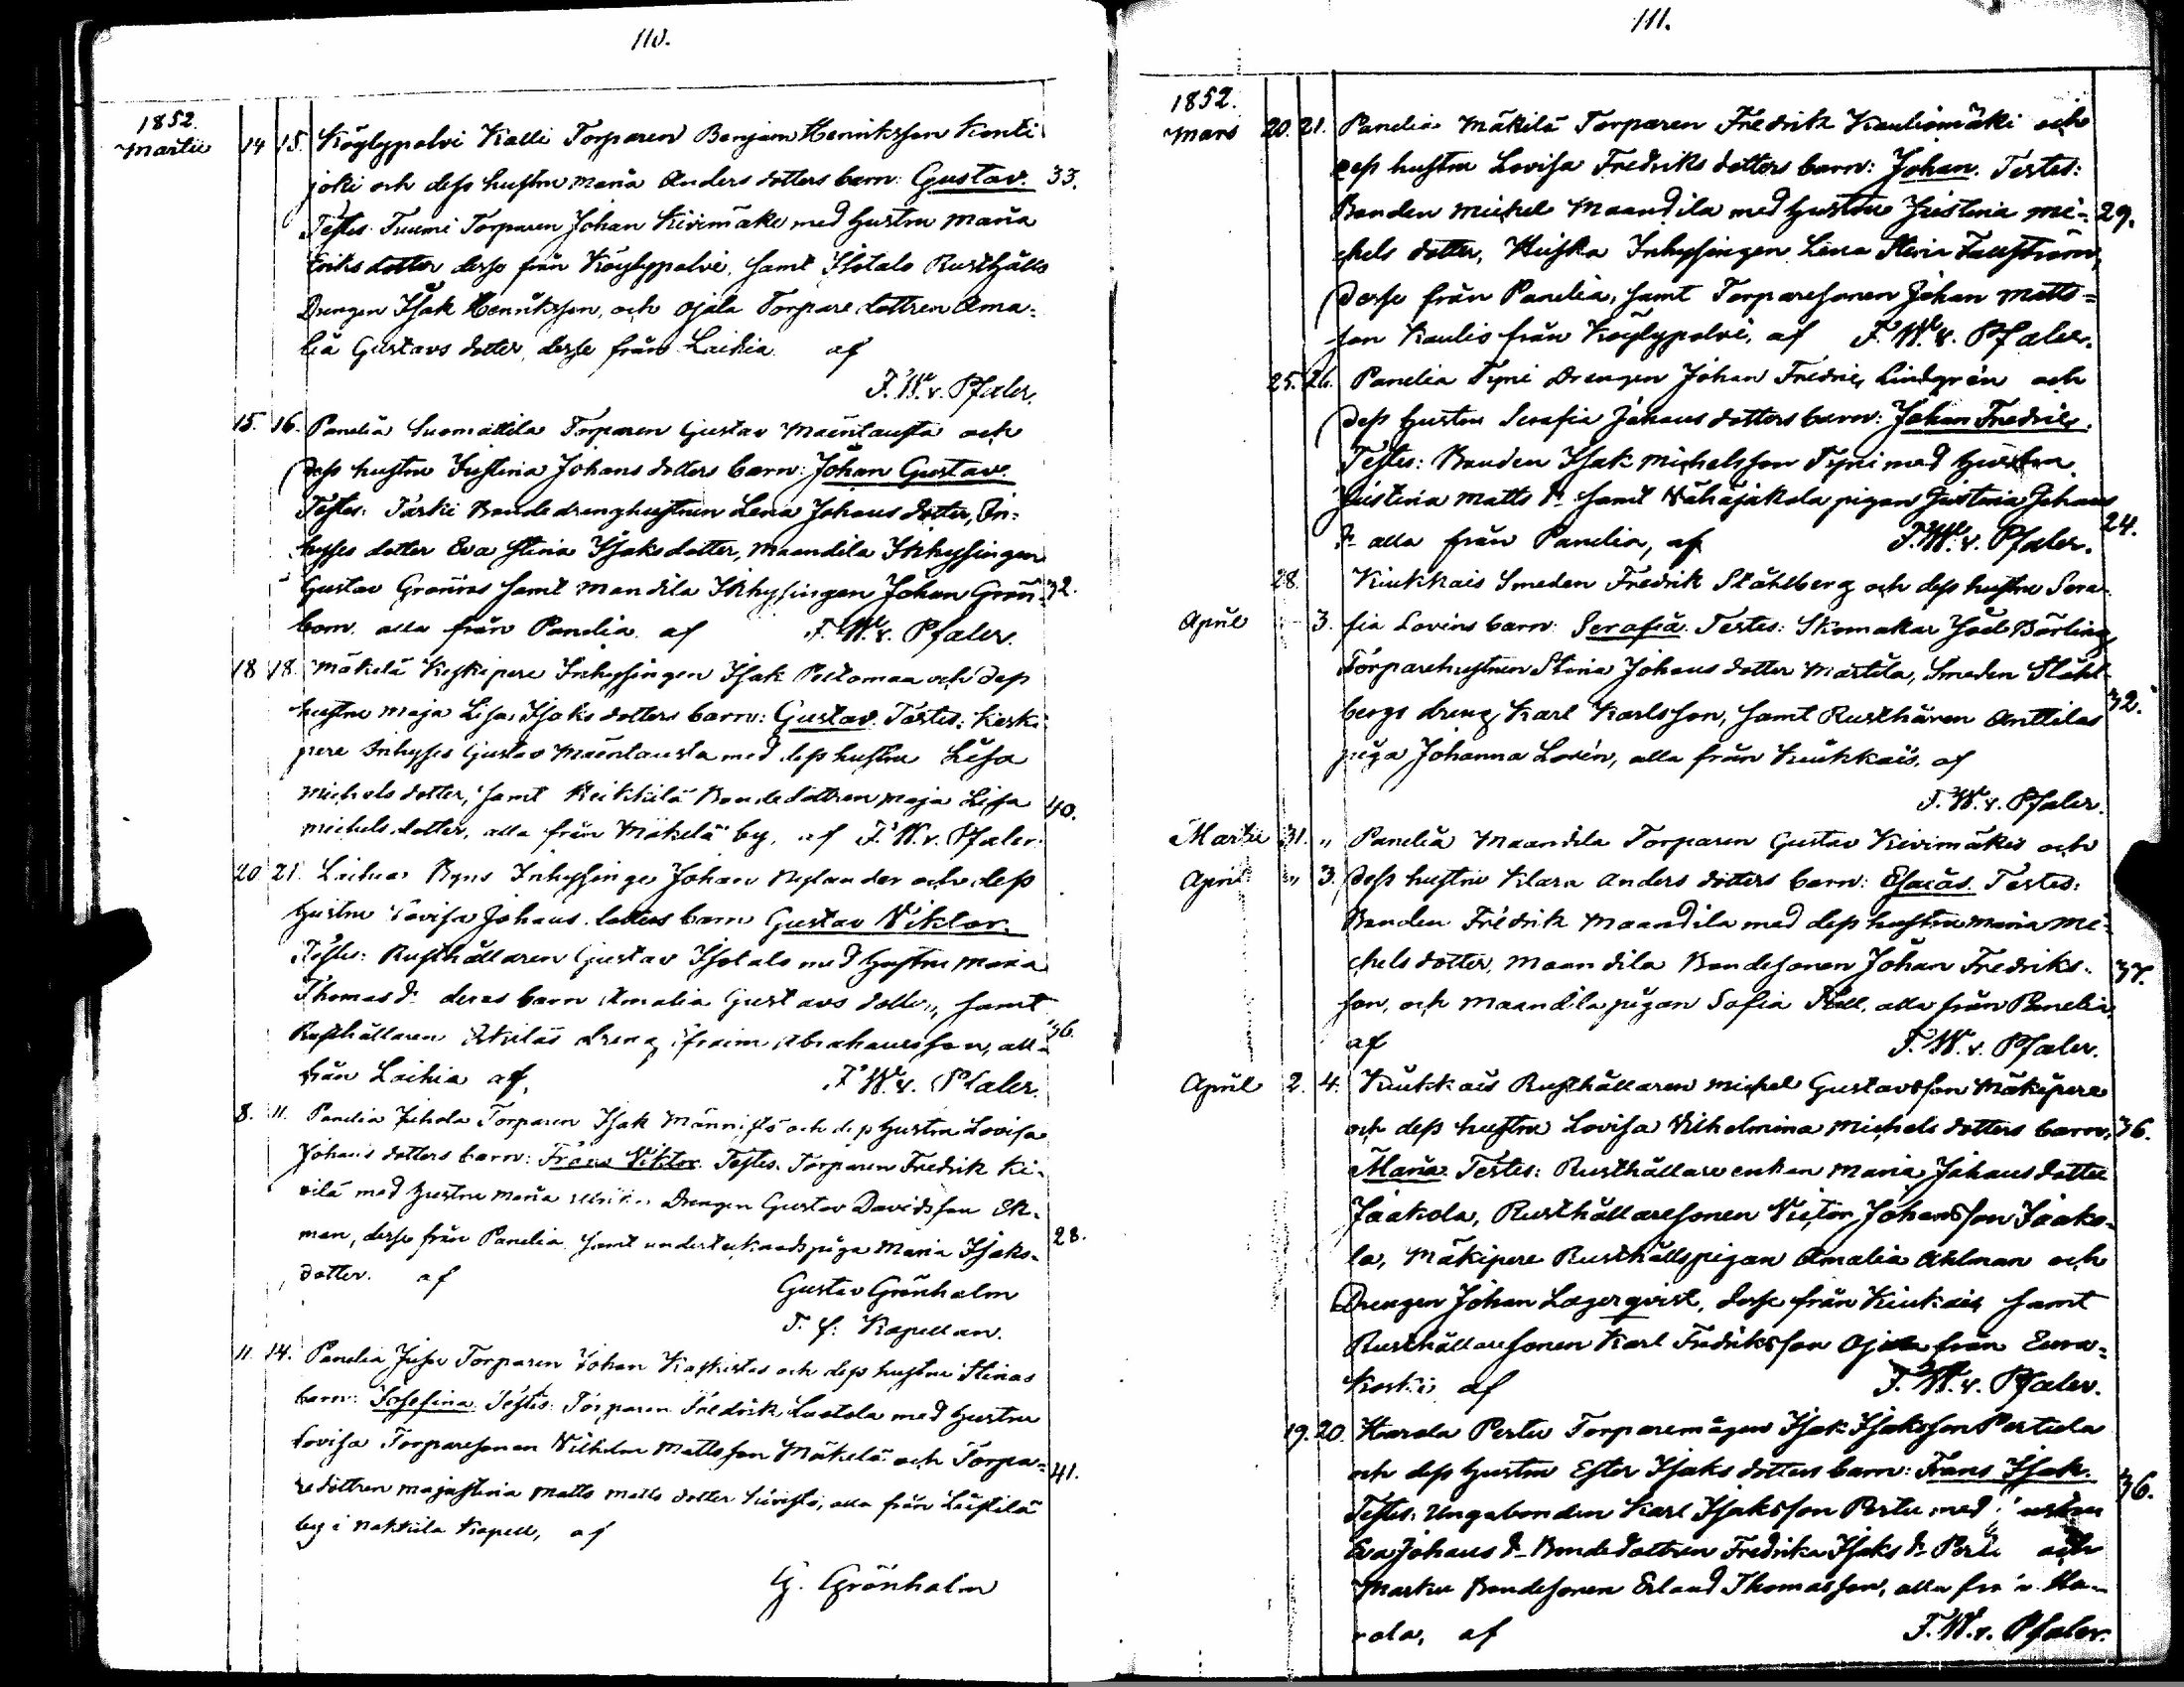 110.
1852.
Martii 14 15. Köylypolvi Kalli Torparen Benjam Henriksson Konti
joki och dess hustru Maria Anders dotters barn: Gustav. 33.
Testes: Tuumi Torparen Johan Kivimäke med hustru Maria
Eriks dotter desse från Köylypolvi, samt Isotalo Rusthålls
Drengen Isak Henriksson, och Ojala Torpare dottren Ama=
lia Gustavs dotter, desse från Laihia af
F. W. v. Pfaler.
15. 16. Panelia Suomattila Torparen Gustav Mäentausta och
dess hustru Justina Johans dotters barn: Johan Gustav.
Testes: Bonde drenghustrun Lena Johans dotter, In=
hyses dotter Eva Stina Isaks dotter, Maandila Inhysingen
Gustav Grönros samt Mandila Inhysingen Johan Grön= 32.
bom, alla från Panelia, af F. W. v. Pfaler.
18 18. Mäkelä Keskipere Inhysingen Isak Peltomaa och dess
hustru Maja Lisa Isaks dotters barn: Gustav. Testes: Keski
pere Inhyses Gustav Mäentausta med dess hustru Lisa
Michels dotter, samt Heikkilä Bondedottren Maja Lisa 40.
Michels dotter, alla från Mäkelä by, af F. W. v. Pfaler.
20 21. Laihia Ryns Inhysinge Johan Nylander och dess
hustru Lovisa Johans dotters barn Gustav Viktor.
Testes: Rusthållaren Gustav Isotalo med hustru Maria
Thomas dr. deras barn Amalia Gustavs dotter, samt
Rusthållaren dreng Efraim Abrahamsson, all= 36.
från Laihia af, F. W. v. Pfaler.
8. 11. Panelia Torparen Isak Männistö och dess hustru Lovisa
Johans dotters barn: Frans Viktor. Testes: Torparen Fredrik Ki=
vilä med hustru Maria Drengen Gustav Davidsson Ek=
man, desse från Panelia samt undertecknads piga Maria Isaks= 28.
dotter. af Gustav Grönholm
T. f. Kapellan.
11. 14. Panelia Torparen Johan och dess hustru Stinas
barn: Josefina. Testes: Torparen Fredrik Luotola med hustru
Lovisa Torparesonen Vilhelm Mattsson Mäkelä och Torpa= 41.
redottren Majastina Matts Matts dotter alla från Leistilä
by i Nakkila Kapell, af
G. Grönholm
111.
1852.
Mars 20. 21. Panelia Mäkilä Torparen Fredrik Kauliomäki och
dess hustru Lovisa Fredriks dotters barn: Johan. Testes:
Bonden Michel Maandila med hustru Justina Mi= 29.
chels dotter, Inhysingen Lena Stina
desse från Panelia, samt Torparesonen Johan Matts=
son Kaulio från Köylypolvi, af F. W. v. Pfaler.
25. 26. Panelia Tyni Drengen Johan Fredric Lindgrén och
dess hustru Serafia Johans dotters barn: Johan Fredric.
Testes: Bonden Isak Michelsson Tyni med hustru
Justina Matts dr. samt Vähäjakola pigan Justina Johans 24.
dr. alla från Panelia, af F. W. v. Pfaler.
28. Kiukkais Smeden Fredrik Ståhlberg och dess hustru Sera=
April 3. fia Lovins barn: Serafia. Testes: Skomakar Joel Börling,
Torparehustrun Stina Johans dotter Martila, Smeden Ståhl= 32.
bergs dreng Karl Karlsson, samt Rusthåren Anttilas
piga Johanna Lovén, alla från Kiukkais, af
F. W. v. Pfaler.
Martii 31. " Panelia Maandila Torparen Gustav Kivimäkis och
April " 3. dess hustru Klara Anders dotters barn: Esaias. Testes:
Bonden Fredrik Maandila med dess hustru Maria Mi=
chels dotter, Maandila Bondesonen Johan Fredriks= 37.
son, och Maandila pigan Sofia Stall, alla från Panelia
af F. W. v. Pfaler.
April 2. 4. Kiukkais Rusthållaren Michel Gustavsson Mäkipere
och dess hustru Lovisa Vilhelmina Michels dotters barn, 36.
Maria. Testes: Rusthållare enkan Maria Johans dotter
Jaakola, Rusthållaresonen Victor Johansson Jaako=
la, Mäkipere Rusthållspigan Amalia Ahlman och
Drengen Johan Lagerqvist, desse från Kiukais samt
Rusthållaresonen Karl Fredriksson Ojala från Eura=
koski af F. W. v. Pfaler.
19. 20. Harola Perttu Torparemågen Isak Isaksson Perttula
och dess hustru Ester Isaks dotters barn: Frans Isak. 36.
Testes: Ungabonden Karl Isaksson Perttu med hustru
Eva Johans dr. Bondedottren Fredrika Isaks dr. Perttu och
Marku Bondesonen Erland Thomasson, alla från Ha=
rola, af F. W. v. Pfaler.